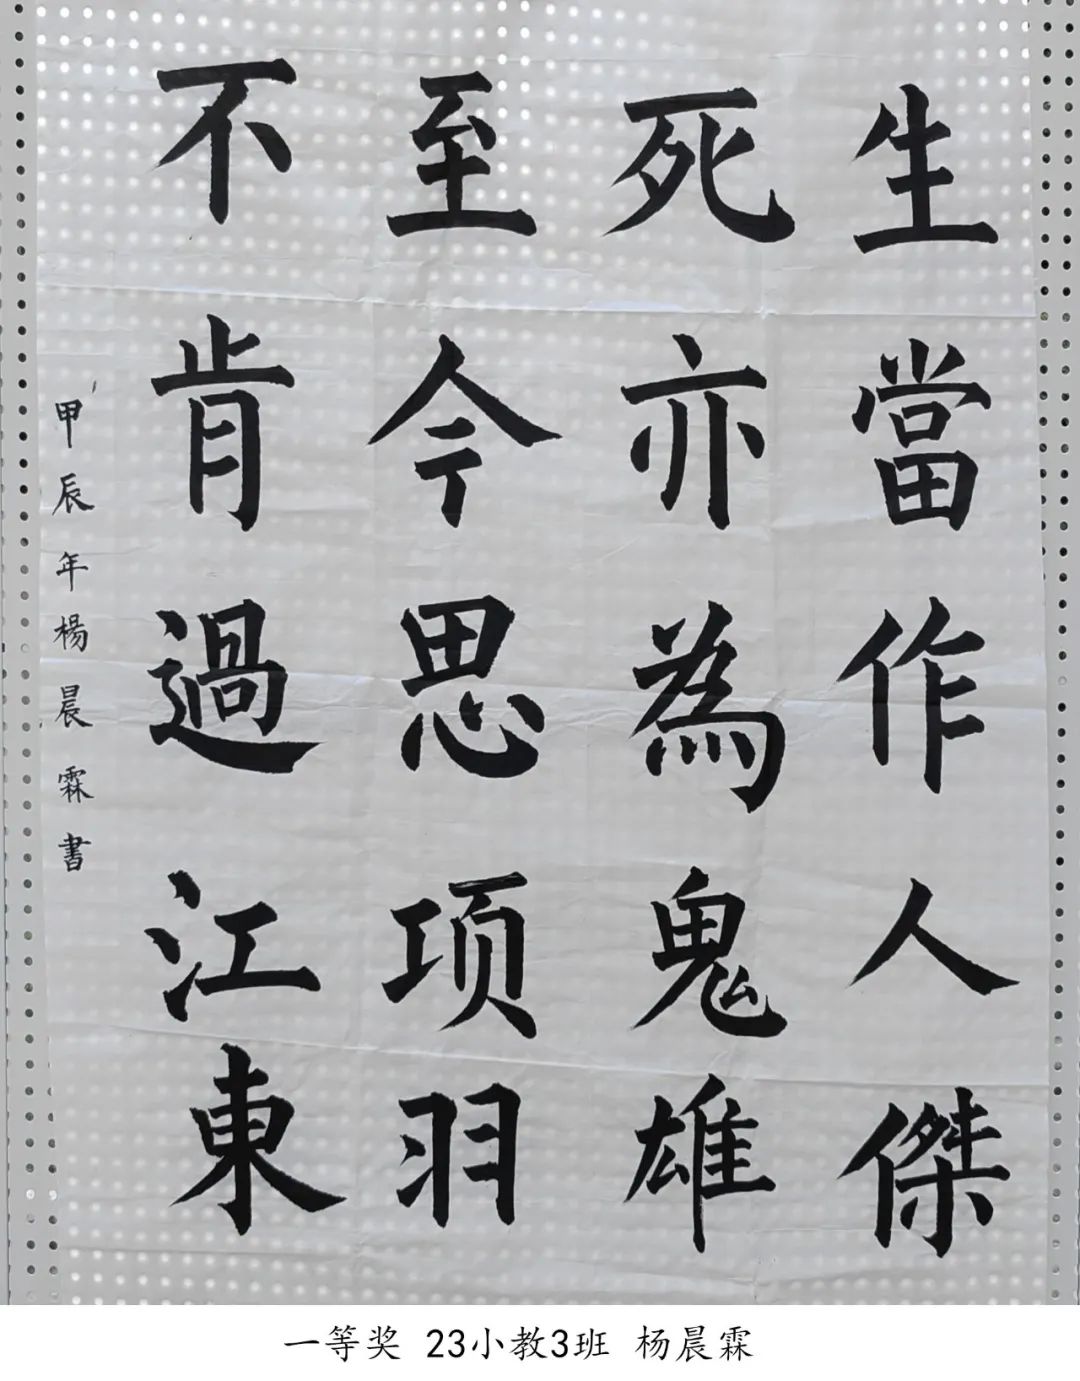 生當作人傑
死亦為鬼雄
至今思项羽
不肯過江東
甲辰年楊晨霖書
一等奖 23小教3班 杨晨霖